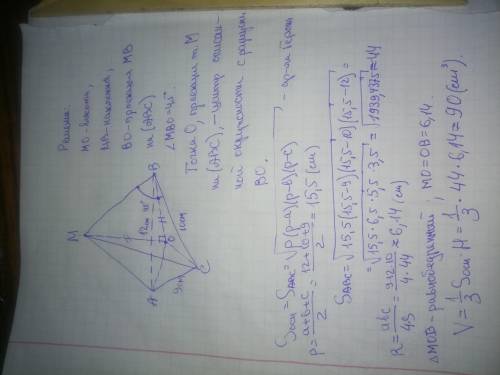 Решение.
MO - высота,
MA - наклонная,
BO - проекция MB
на (ABC),
∠MBO = 45°
Точка O, проекция т. M
на (ABC), - центр описан-
ной окружности с радиусом
BO.
M
A
B
C
O
12см
45°
10см
9см
Sосн = S_ABC = √p(p-a)(p-b)(p-c) - ф-ла Герона
p = (a+b+c)/2 = (12+10+9)/2 = 15,5 (cm)
S_ABC = √15,5(15,5-9)(15,5-10)(15,5-12) =
= √15,5·6,5·5,5·3,5 = √1939,4375 ≈ 44
R = abc/4S = 9·12·10/4·44 ≈ 6,14 (см)
△MOB - равнобедренный; MO = OB = 6,14.
V = 1/3 Sосн · H = 1/3 · 44 · 6,14 ≈ 90 (см³).